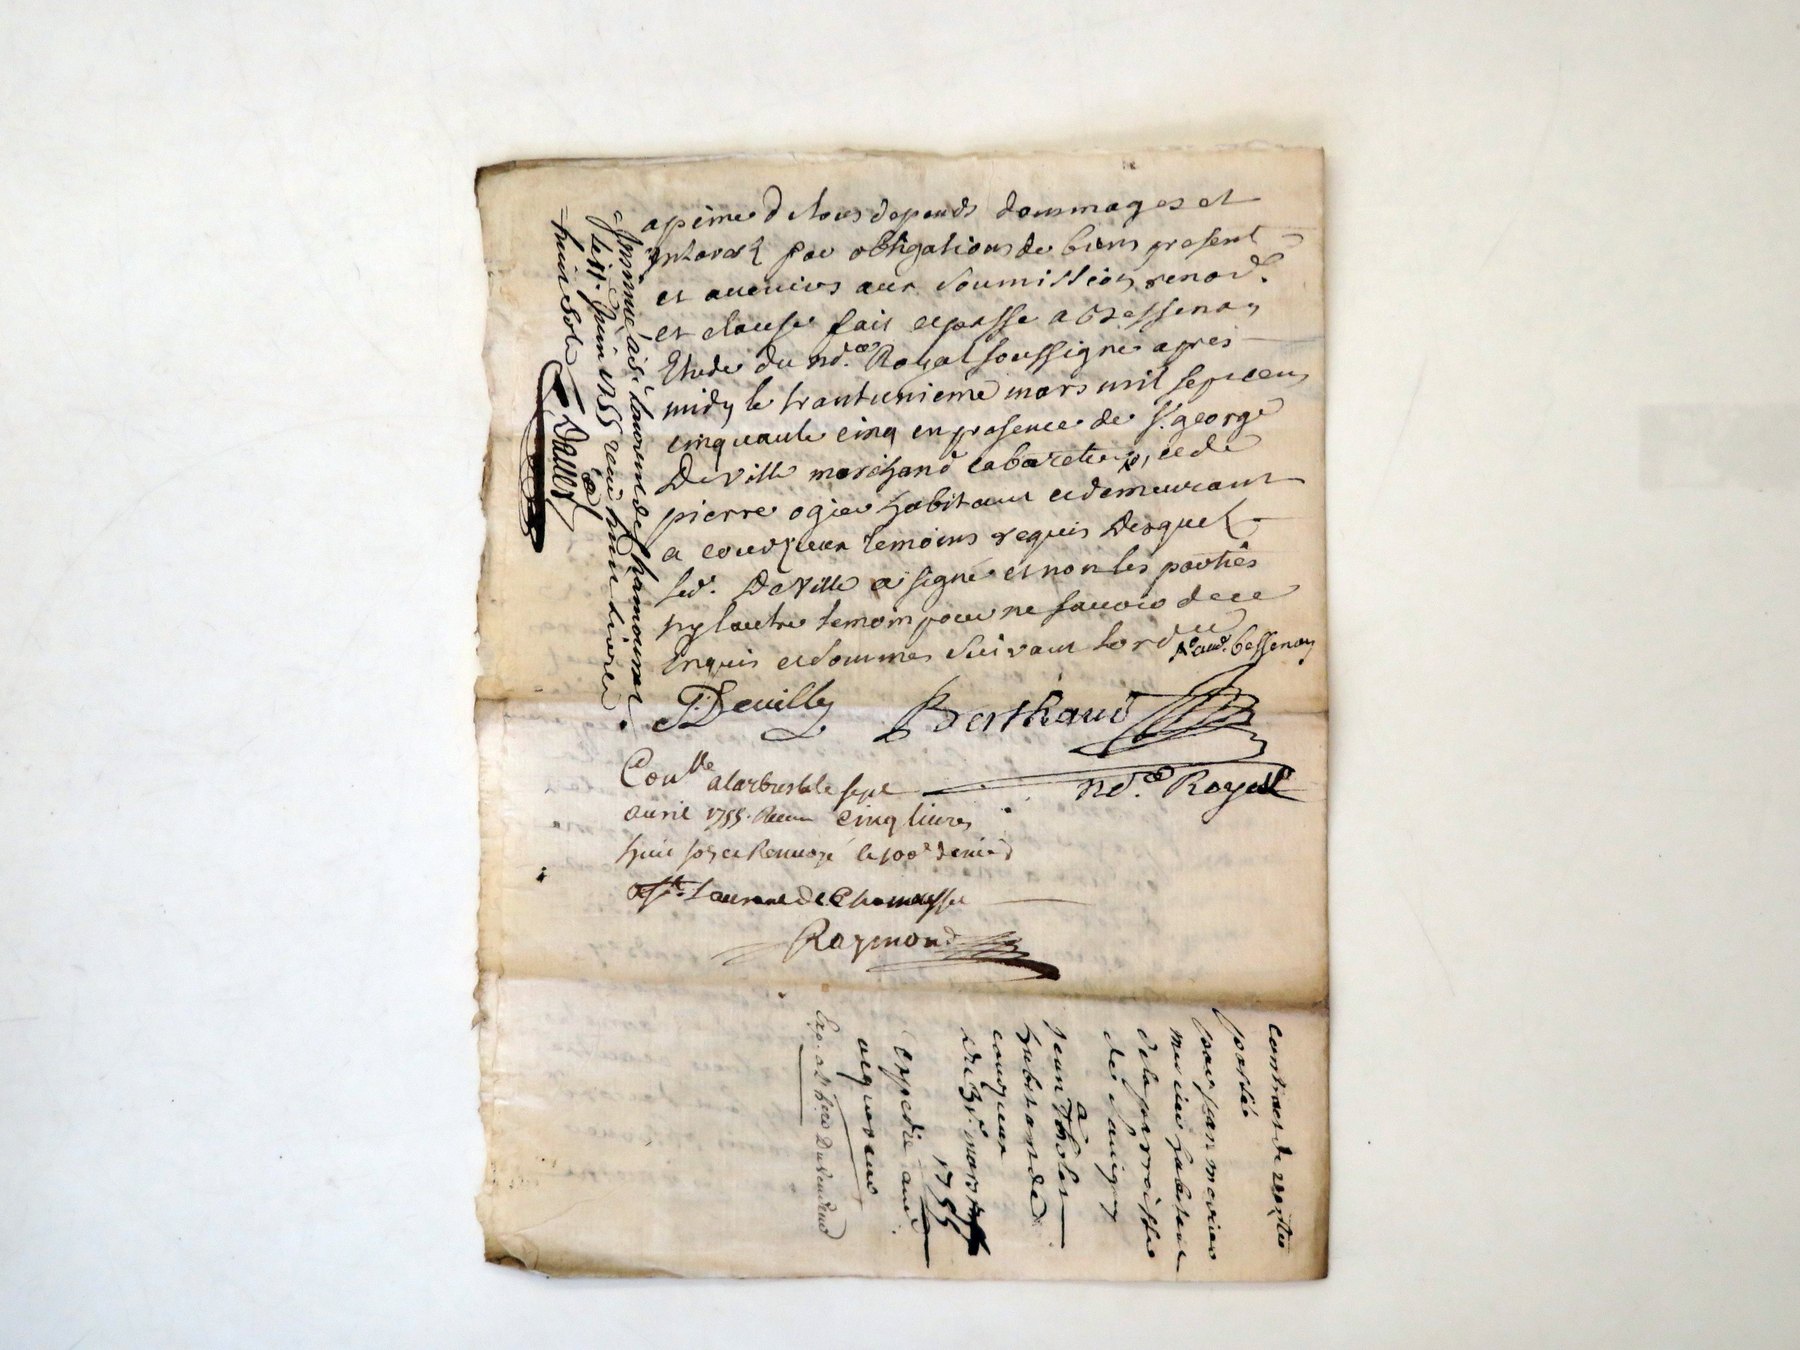 a peine de tous depends dommages et
Interest par obligations de biens present
et avenirs aux soumission renon.
et clause fait et passe a Bessenay
Etude du no.re Royal soussigne apres
midy le trantunieme mars mil sept cens
cinquante cinq en presence de sr. george
Deville marchand cabaretier, et de
pierre ogier habitant et demeurant
a courzieu temoins requis desquel
led. Deville a signé et non les parties
ny lautre temoin pour ne savoir de ce
Enquis et sommes suivant lord.ce
a bessenay
Deville Berthaud
no.re Royal
Con.lle a larbresle le sept
avril 1755. Recu cinq livres
huit sols et Renvoyé le 100e denier
a St. Laurent de Chamousset
Raymond
Insinué a St. Laurent de Chamousset
le juin 1755 reçu huit livres
huit sols
Contract de
passée
par jean
habitant
de la parroisse
de Savigny
a
jean
habitant de
courzieu
du 31e. mars
1755
Expedié aud.
acquereur